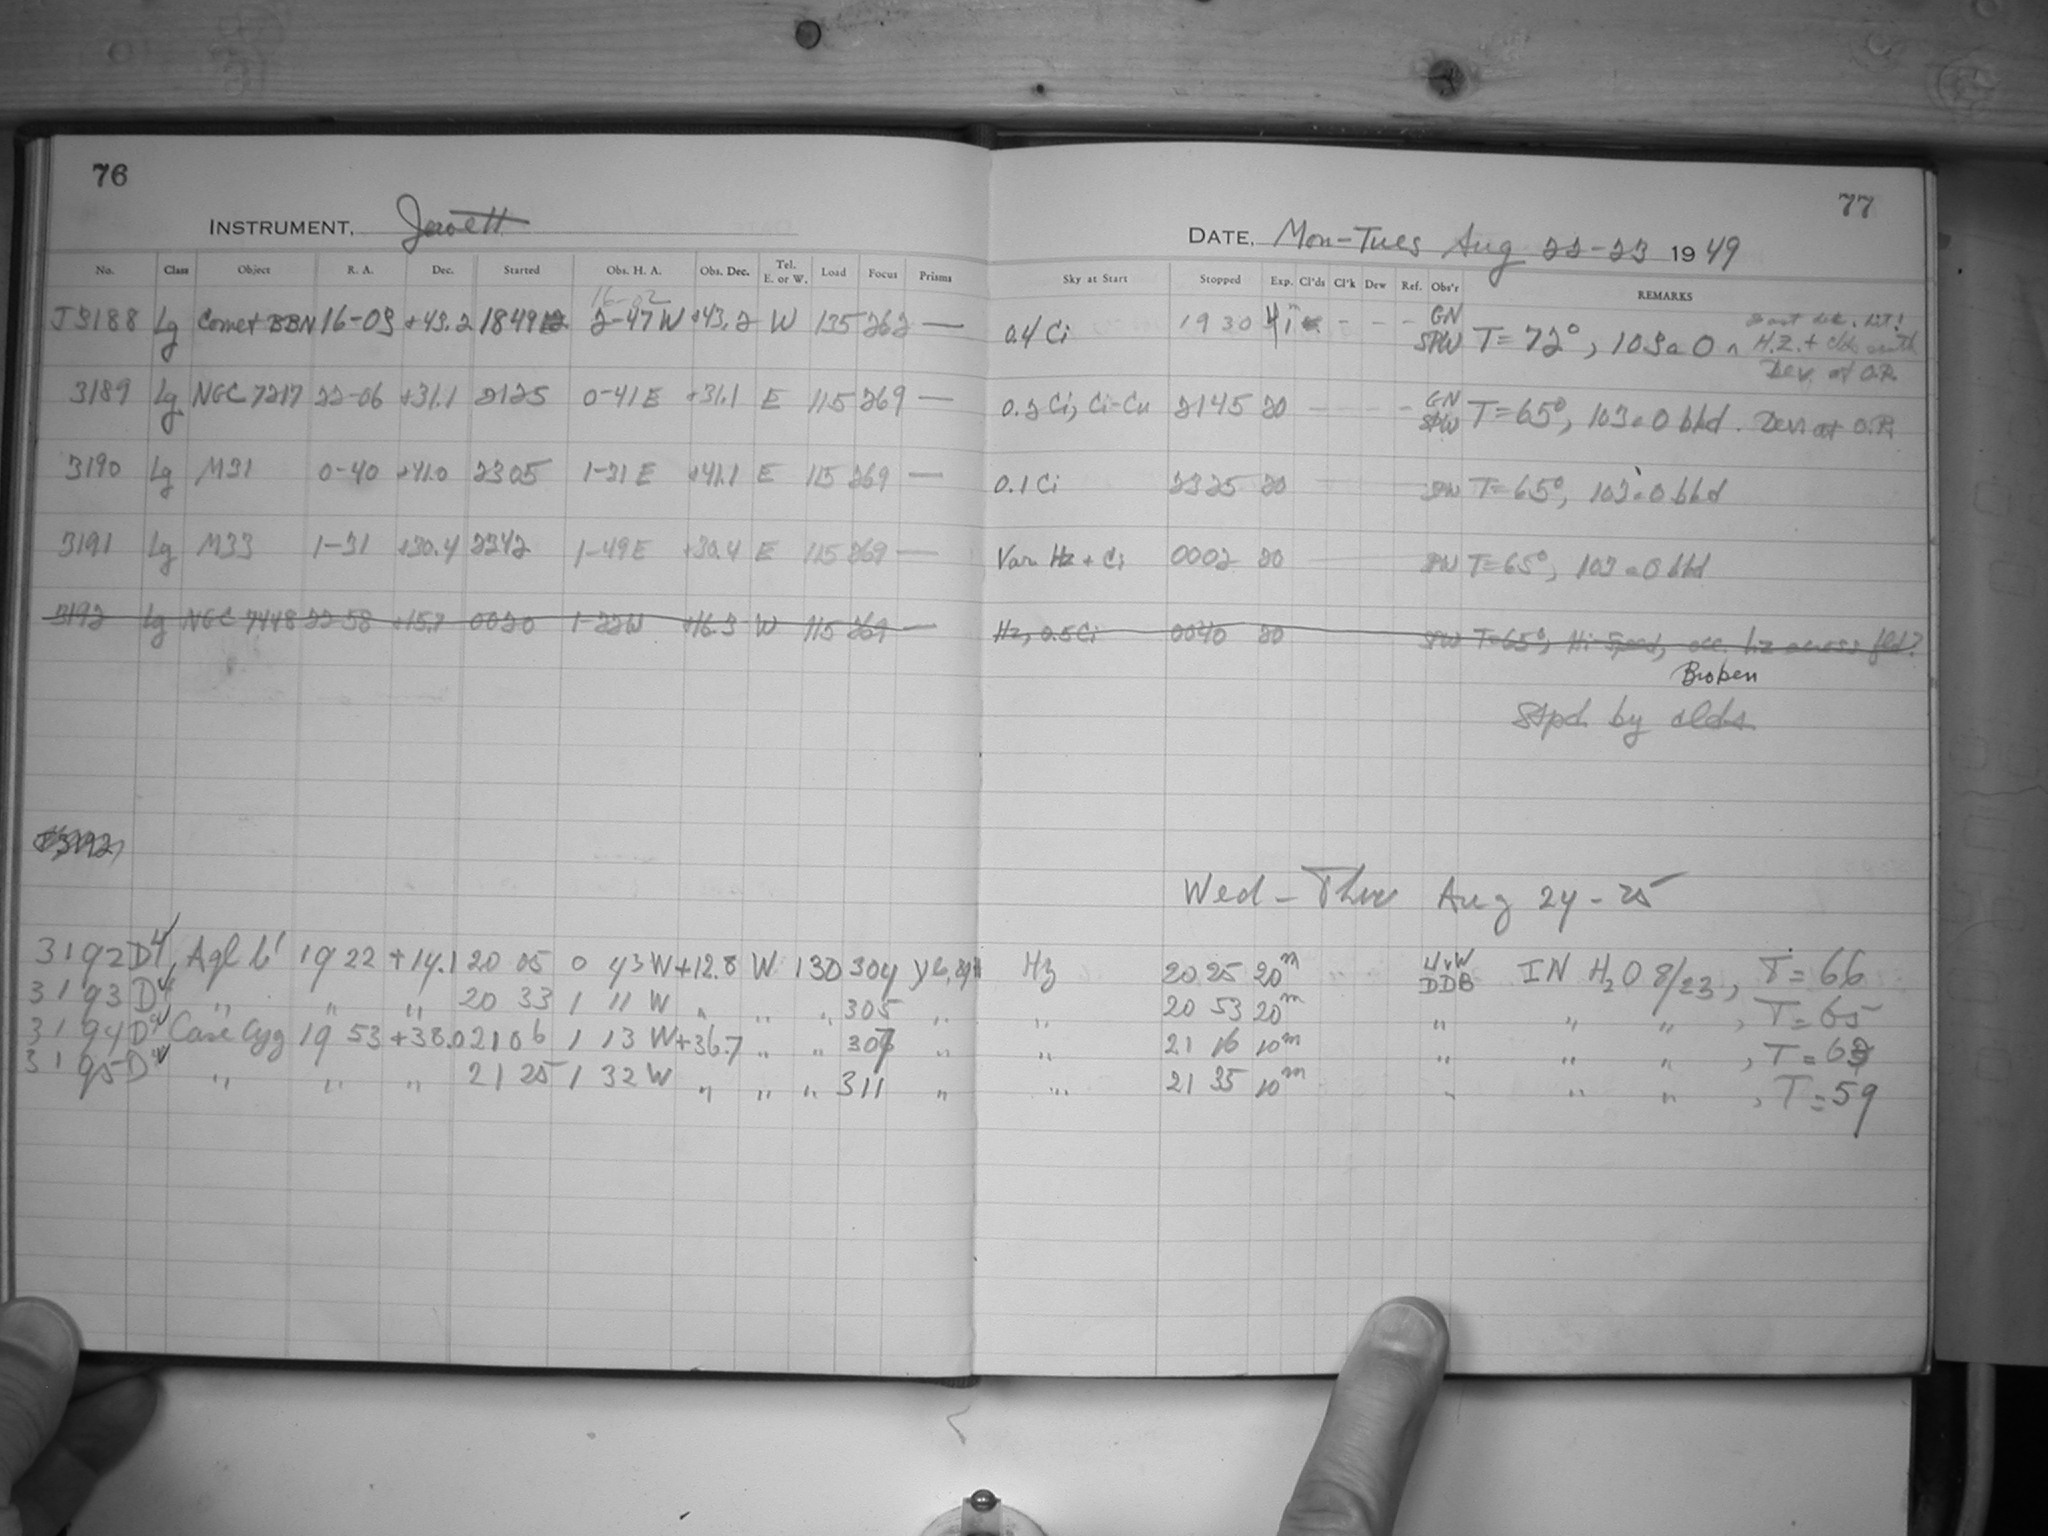 76
77
INSTRUMENT, Jewett
DATE, Mon-Tues Aug 22-23 1949
No. Class Object R. A. Dec. Started Obs. H. A. Obs. Dec. Tel. E. or W. Load Focus Prisms Sky at Start Stopped Exp. Cl'ds Cl'k Dew Ref. Obs'r REMARKS
16-02
J3188 Lg Comet BBN 16-03 +43.2 1849 2-47 W +43.2 W 135 262 — 0.4 Ci 1930 41m - - - - GN SPW T=72°, 103a-O
Dev. at O.R.
3189 Lg NGC 7217 22-06 +31.1 2125 0-41 E +31.1 E 115 269 — 0.2 Ci, Ci-Cu 2145 20 - - - - GN SPW T=65°, 103a-O bkd. Dev. at O.R.
3190 Lg M31 0-40 +41.0 2305 1-21 E +41.1 E 115 269 — 0.1 Ci 2325 20 SPW T=65°, 103a-O bkd
3191 Lg M33 1-31 +30.4 2342 1-49 E +30.4 E 115 269 — Var. Hz + Ci 0002 20 SPW T=65°, 103a-O bkd
3192 Lg NGC 7448 22 58 +15.7 0020 1-22W +16.3 W 115 269 — Hz, 0.5 Ci 0040 20 SPW T=65°, Hi-Speed, occ. hz across fld?
Broken
Stpd by clds
J3192
Wed - Thur Aug 24-25
3192 D4 Aql 19 22 +14.1 20 05 0 43 W +12.8 W 130 304 Hz 20 25 20m DDB IN H2O 8/23, T=66
3193 D4 " " " 20 33 1 11 W " " " 305 " " 20 53 20m " " " , T=65
3194 D4 Case Cyg 19 53 +38.0 21 06 1 13 W +36.7 " " 307 " " 21 16 10m " " " , T=63
3195 D4 " " " 21 25 1 32 W " " " 311 " " 21 35 10m " " " , T=59